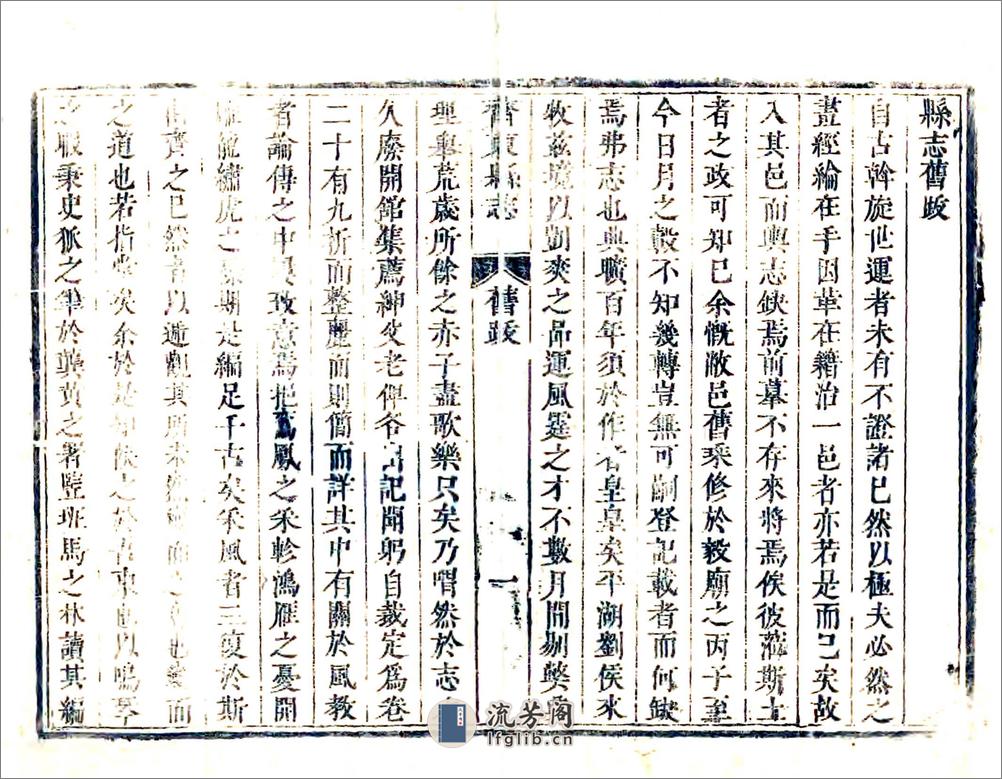 縣志舊跋
自古斡旋世運者未有不證諸已然以極夫必然之
畫經綸在手因革在籍治一邑者亦若是而已矣故
入其邑而輿志缺焉前摹不存來將焉俟彼蒞斯土
者之政可知已余慨敝邑舊乘修於毅廟之丙子至
今日月之轂不知幾轉豈無可嗣登記載者而何缺
焉弗志也典曠百年須於作者皇皇矣平湖劉侯來
牧茲境以剴爽之品運風霆之才不數月間剔獘
齊東縣志 舊跋 一
理舉荒歲所餘之赤子盡歌樂只矣乃喟然於志
久廢開館集薦紳父老俾各出記聞躬自裁定為卷
二十有九析而整麗而則簡而詳其中有關於風教
者論傳之中致意焉挹鸞鳳之采軫鴻雁之憂開
龍繡虎之期是編足千古矣采風者三復於斯
由齊之已然者以遞觀其所未然
之道也若指掌矣余於是知侯之於齊東也以鳴琴
之暇秉史狐之筆於龔黃之署登班馬之林讀其編
流芳阁
lfglib.cn